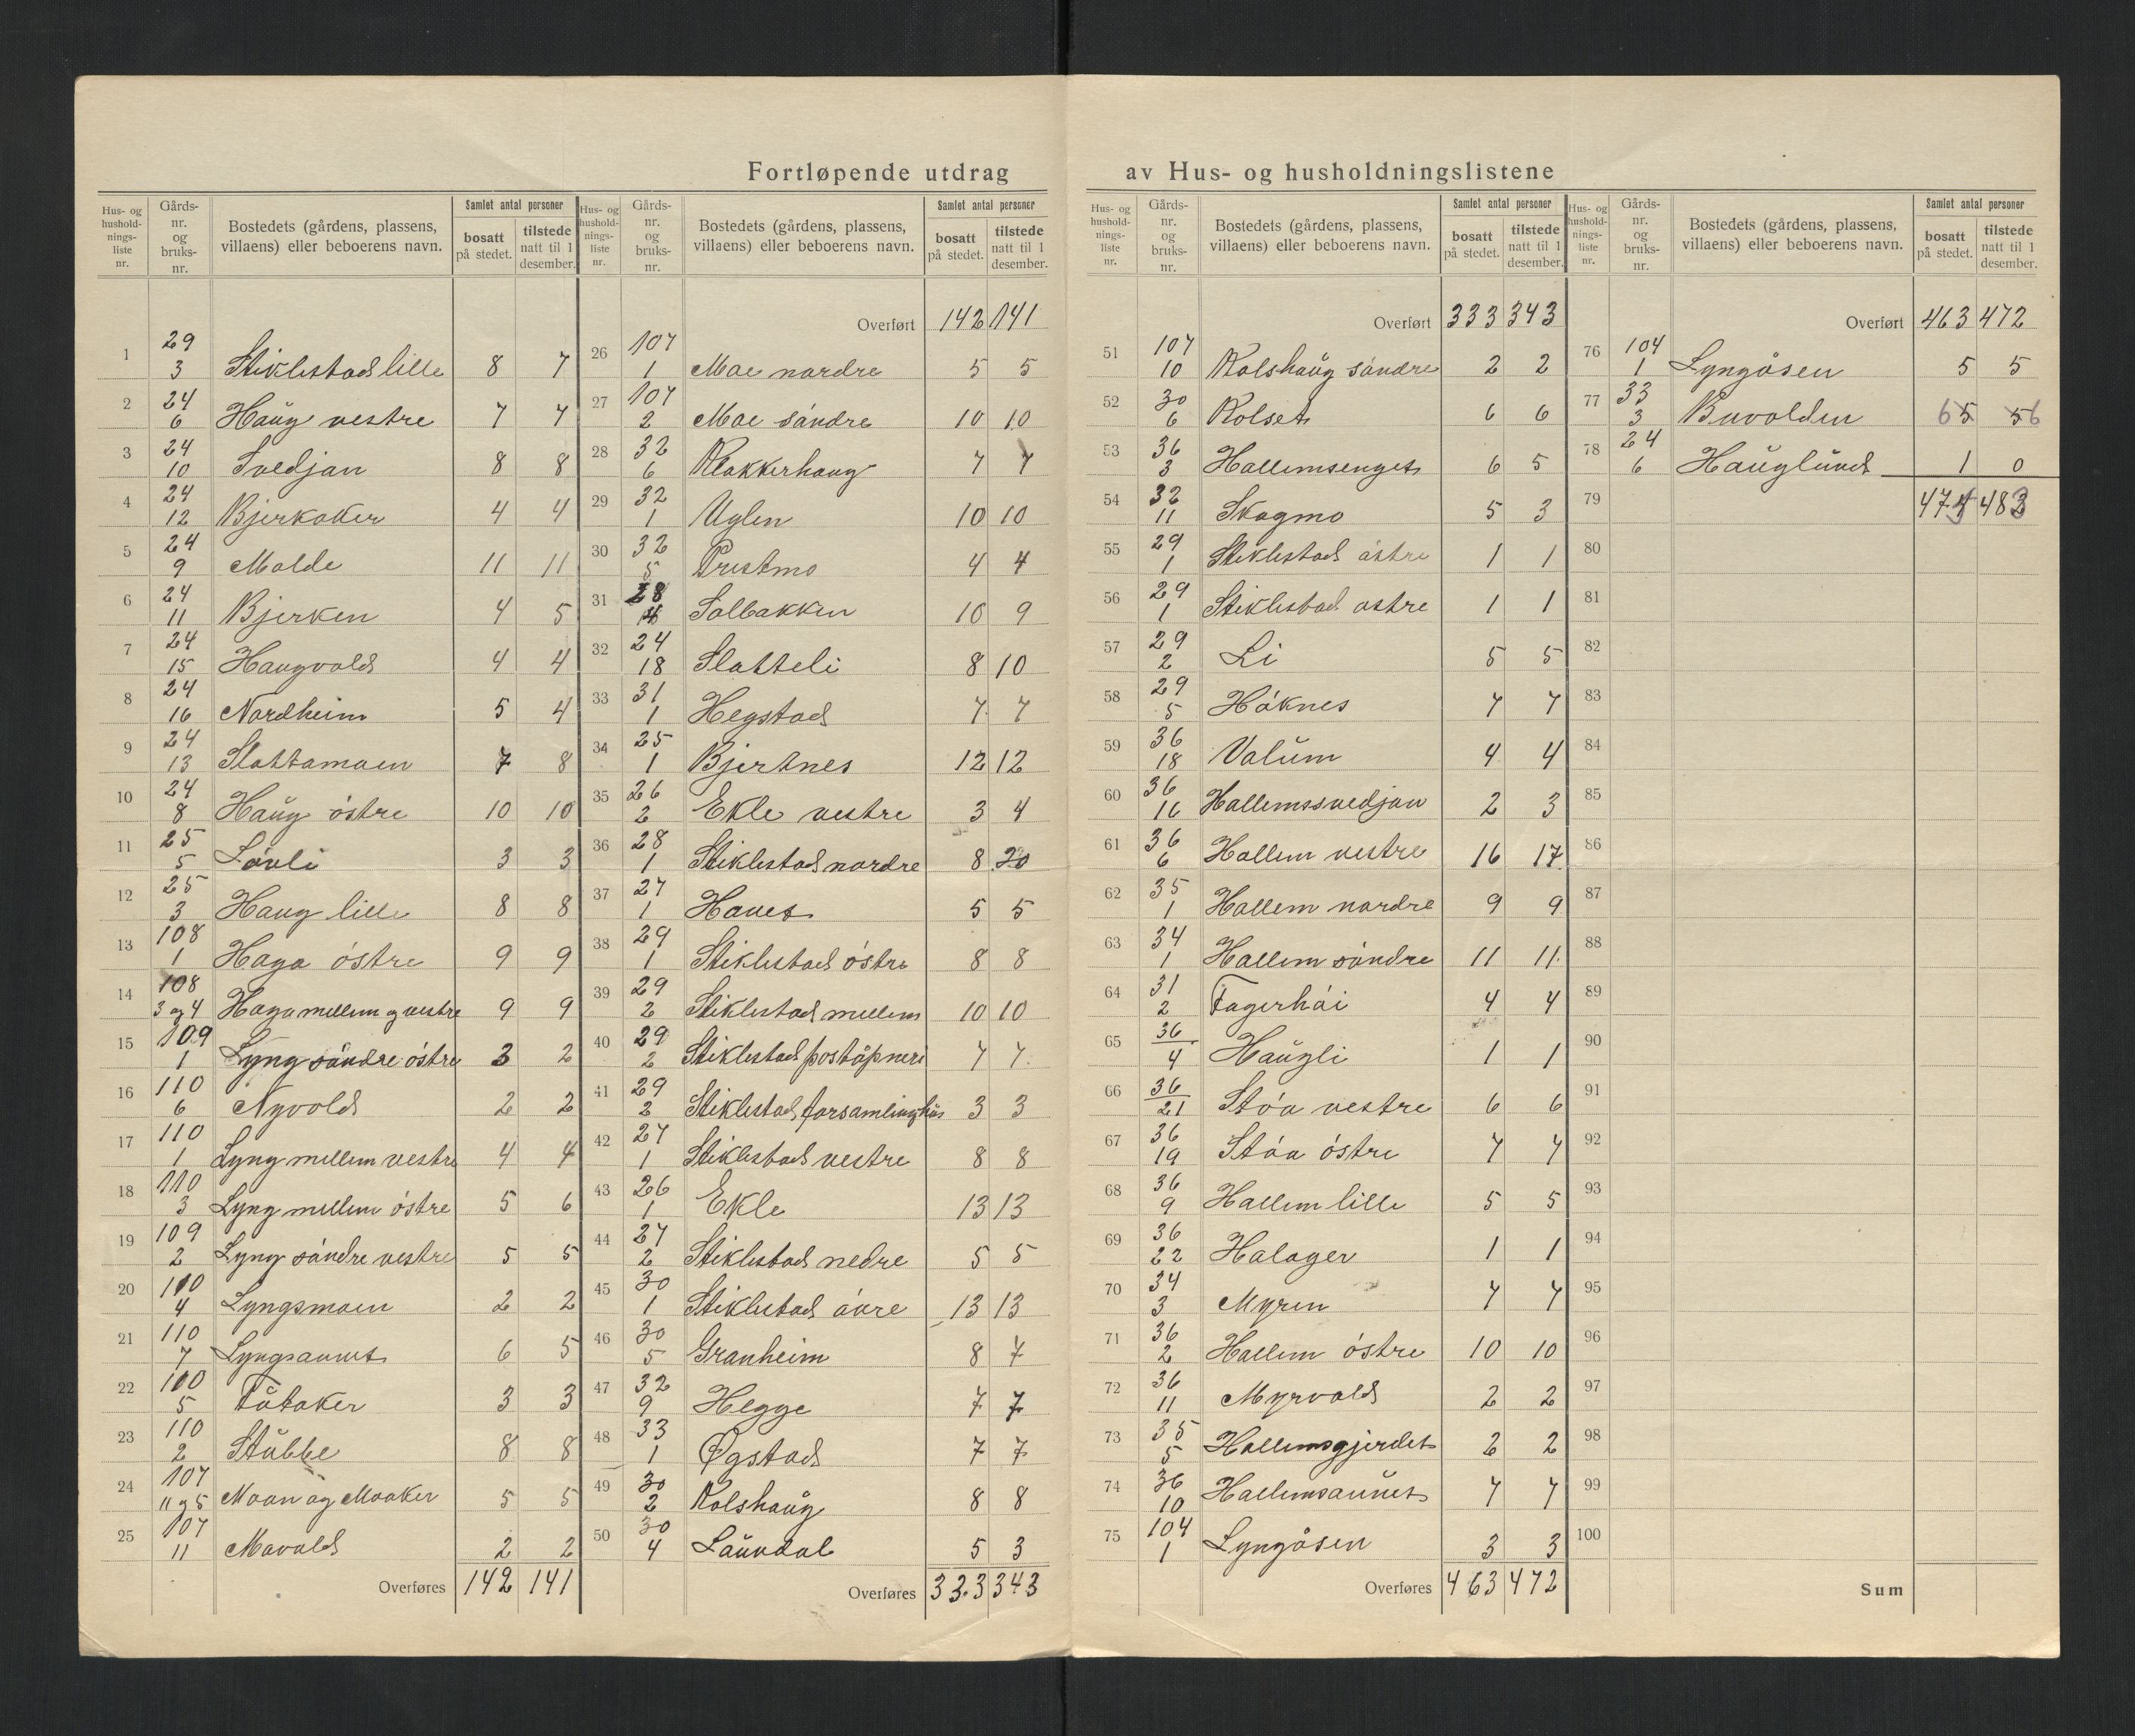 Fortløpende utdrag av Hus- og husholdningslistene
Hus- og hushold-nings-liste nr. | Gårds-nr. og bruks-nr. | Bostedets (gårdens, plassens, villaens) eller beboerens navn. | Samlet antal personer | bosatt på stedet. | tilstede natt til 1 desember.
1 29 3 Stiklestad lille 8 7
2 24 6 Haug vestre 7 7
3 24 10 Svedjan 8 8
4 24 12 Bjerkaker 4 4
5 24 9 Molde 11 11
6 24 11 Bjerken 4 5
7 24 15 Haugvold 4 4
8 24 16 Nordheim 5 4
9 24 13 Slottamoen 7 8
10 24 8 Haug östre 10 10
11 25 5 Lövli 3 3
12 25 3 Haug lille 8 8
13 108 1 Haga östre 9 9
14 108 3 og 4 Haga mellem og vestre 9 9
15 109 1 Lyng söndre östre 3 2
16 110 6 Nyvold 2 2
17 110 1 Lyng mellem vestre 4 4
18 110 3 Lyng mellem östre 5 6
19 109 2 Lyng söndre vestre 5 5
20 110 4 Lyngsmoen 2 2
21 110 7 Lyngsaunet 6 5
22 110 5 Tötaker 3 3
23 110 2 Stubbe 8 8
24 107 11 og 5 Moan og Moaker 5 5
25 107 11 Movold 2 2
Overføres 142 141
Hus- og hushold-nings-liste nr. | Gårds-nr. og bruks-nr. | Bostedets (gårdens, plassens, villaens) eller beboerens navn. | Samlet antal personer | bosatt på stedet. | tilstede natt til 1 desember.
Overført 142 141
26 107 1 Moe nordre 5 5
27 107 2 Moe söndre 10 10
28 32 6 Klokkerhaug 7 7
29 32 1 Uglen 10 10
30 32 5 Prestmo 4 4
31 28 4 Solbakken 10 9
32 24 18 Slotteli 8 10
33 31 1 Hegstad 7 7
34 25 1 Bjertnes 12 12
35 26 2 Ekle vestre 3 4
36 28 1 Stiklestad nordre 8 20
37 27 1 Hovet 5 5
38 29 1 Stiklestad östre 8 8
39 29 2 Stiklestad mellem 10 10
40 29 2 Stiklestad poståpneri 7 7
41 29 2 Stiklestad forsamlinghus 3 3
42 27 1 Stiklestad vestre 8 8
43 26 1 Ekle 13 13
44 27 2 Stiklestad nedre 5 5
45 30 1 Stiklestad övre 13 13
46 30 5 Granheim 8 7
47 32 9 Hegge 7 7
48 33 1 Øgstad 7 7
49 30 2 Kolshaug 8 8
50 30 4 Laundal 5 3
Overføres 333 343
Hus- og hushold-nings-liste nr. | Gårds-nr. og bruks-nr. | Bostedets (gårdens, plassens, villaens) eller beboerens navn. | Samlet antal personer | bosatt på stedet. | tilstede natt til 1 desember.
Overført 333 343
51 107 10 Kolshaug söndre 2 2
52 30 6 Kolset 6 6
53 36 3 Hallemsenget 6 5
54 32 11 Skogmo 5 3
55 29 1 Stiklestad östre 1 1
56 29 1 Stiklestad östre 1 1
57 29 2 Li 5 5
58 29 5 Höknes 7 7
59 36 18 Valum 4 4
60 36 16 Hallemssvedjan 2 3
61 36 6 Hallem vestre 16 17
62 35 1 Hallem nordre 9 9
63 34 1 Hallem söndre 11 11
64 31 2 Fagerhöi 4 4
65 36 4 Haugli 1 1
66 36 21 Stöa vestre 6 6
67 36 19 Stöa östre 7 7
68 36 9 Hallem lille 5 5
69 36 22 Halager 1 1
70 34 3 Myren 7 7
71 36 2 Hallem östre 10 10
72 36 11 Myrvold 2 2
73 35 5 Hallemsgjerdet 2 2
74 36 10 Hallemsaunet 7 7
75 104 1 Lyngåsen 3 3
Overføres 463 472
Hus- og hushold-nings-liste nr. | Gårds-nr. og bruks-nr. | Bostedets (gårdens, plassens, villaens) eller beboerens navn. | Samlet antal personer | bosatt på stedet. | tilstede natt til 1 desember.
Overført 463 472
76 104 1 Lyngåsen 5 5
77 33 3 Buvolden 6 5 5 6
78 24 6 Hauglund 1 0
79 483
80
81
82
83
84
85
86
87
88
89
90
91
92
93
94
95
96
97
98
99
100
Sum